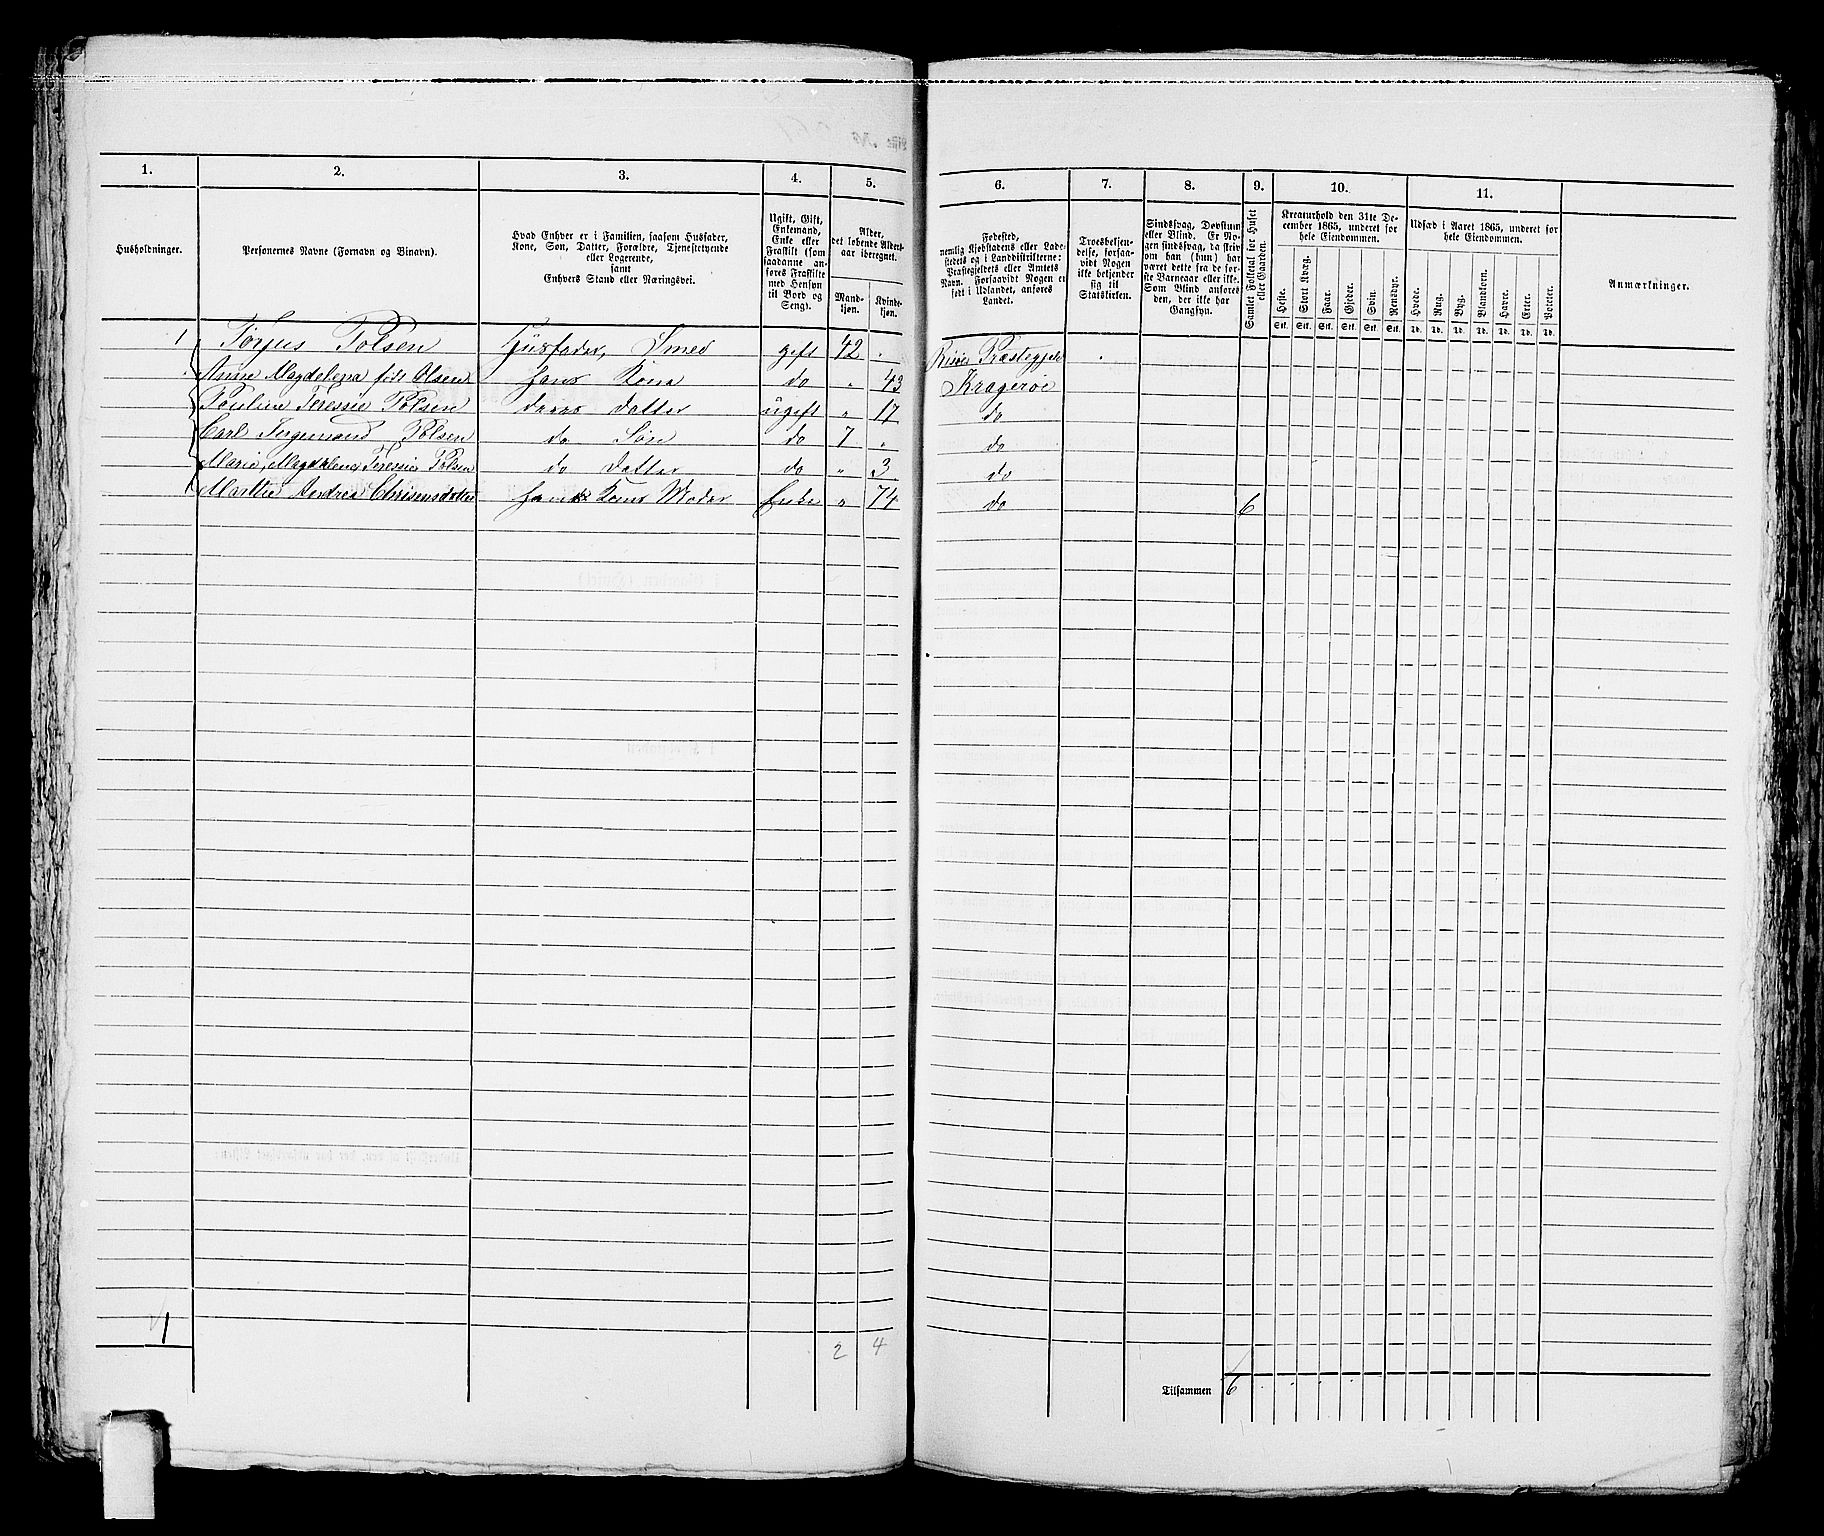 1. 2. 3. 4. 5. 6. 7. 8. 9. 10. 11.
Husholdninger.
Personernes Navne (Fornavn og Binavn).
Hvad Enhver er i Familien, saasom Husfader,
Kone, Søn, Datter, Forældre, Tjenestetyende
eller Logerende,
samt
Enhvers Stand eller Næringsvei.
Ugift, Gift,
Enkemand,
Enke eller
Fraskilt (som
saadanne an-
føres Fraskilte
med Hensyn
til Bord og
Seng).
Alder,
det løbende Alders-
aar iberegnet.
Mand-
kjøn.
Kvinde-
kjøn.
Fødested,
nemlig Kjøbstadens eller Lade-
stedets og i Landdistrikterne:
Præstegjeldets eller Amtets
Navn. Forsaavidt Nogen er
født i Udlandet, anføres
Landet.
Troesbekjen-
delse, forsaa-
vidt Nogen
ikke bekjender
sig til
Statskirken.
Sindssvag, Døvstum
eller Blind. Er No-
gen sindssvag, da skriv
om han (hun) har
været dette fra de før-
ste Barneaar eller ikke.
Som Blind anføres
den, der ikke har
Gangsyn.
Samlet Folketal for Huset
eller Gaarden.
Kreaturhold den 31te De-
cember 1865, underet for
hele Eiendommen.
Heste. Stort Kvæg. Faar. Gjeder. Svin. Rensdyr.
Stk. Stk. Stk. Stk. Stk. Stk.
Udsæd i Aaret 1865, underet for
hele Eiendommen.
Hvede. Rug. Byg. Blandkorn. Havre. Erter. Poteter.
Td. Td. Td. Td. Td. Td. Td.
Anmærkninger.
1 Torjus Polsen Husfader, Smed gift 42 " Risøer Præstegjeld
Anne Magdelena født Olsen hans Kona do " 43 Kragerøe
Teressie Polsen deres datter ugeft " 17 do
Carl Polsen do Søn do 7 " do
Marie Magdelena Teressie Polsen do datter do " 3 do
Marthe Andrea Chrisensdatter Kons Moder Enke " 74 do 6
1
2 4
Tilsammen 6